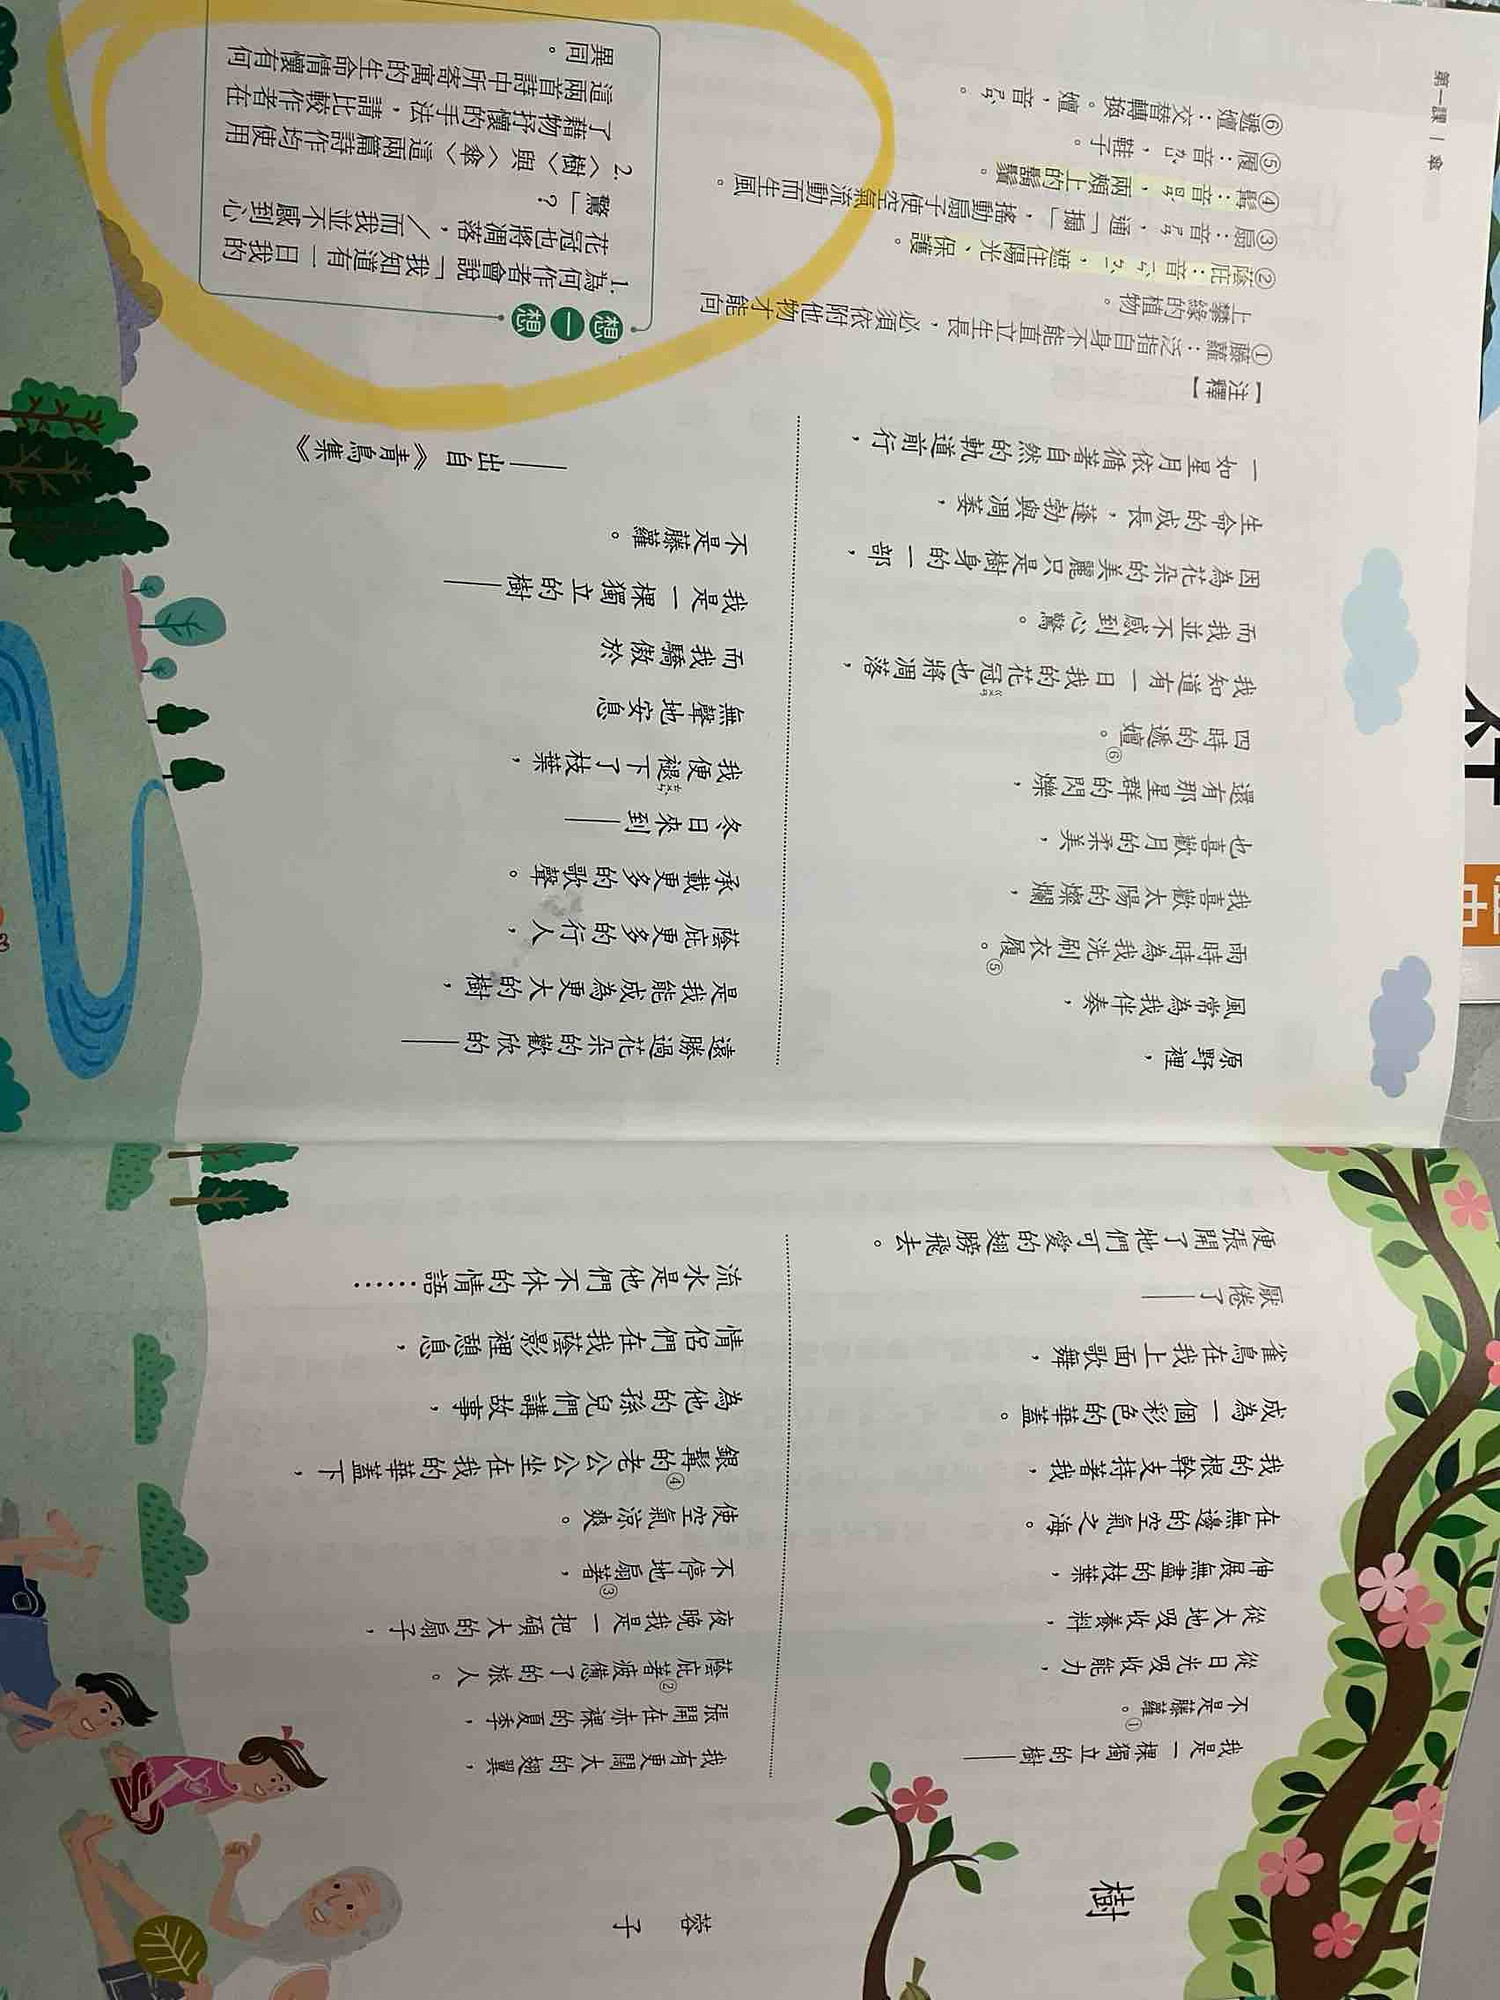 樹
蓉子
我是一棵獨立的樹——
不是藤蘿①。
從日光吸收能力,
從大地吸收養料,
伸展無盡的枝葉,
在無邊的空氣之海。
我的根幹支持著我,
成為一個彩色的華蓋。
雀鳥在我上面歌舞,
厭倦了——
便張開了牠們可愛的翅膀飛去。
我有更闊大的翅翼,
張開在赤裸的夏季,
蔭庇②著疲憊了的旅人。
夜晚我是一把碩大的扇子,
不停地扇③著,
使空氣涼爽。
銀髯④的老公公坐在我的華蓋下,
為他的孫兒們講故事,
情侶們在我蔭影裡憩息,
流水是他們不休的情語……
第一課|傘
原野裡,
風常為我伴奏,
雨時時為我洗刷衣履⑤。
我喜歡太陽的燦爛,
也喜歡月的柔美,
還有那星群的閃爍,
四時的遞嬗⑥。
我知道有一日我的花冠ㄍㄨㄢ也將凋落,
而我並不感到心驚。
因為花朵的美麗只是樹身的一部,
生命的成長,蓬勃與凋萎,
一如星月依循著自然的軌道前行,
遠勝過花朵的歡欣的——
是我能成為更大的樹,
蔭庇更多的行人,
承載更多的歌聲。
冬日來到——
我便褪ㄊㄨㄣˋ下了枝葉,
無聲地安息
而我驕傲於
我是一棵獨立的樹——
不是藤蘿。
——出自《青鳥集》
【注釋】
①藤蘿:泛指自身不能直立生長,必須依附他物才能向
上攀緣的植物。
②蔭庇:音ㄧㄣˋ ㄅㄧˋ,遮住陽光、保護。
③扇:音ㄕㄢ,通「搧」,搖動扇子使空氣流動而生風。
④髯:音ㄖㄢˊ,兩頰上的鬍鬚。
⑤履:音ㄌㄩˇ,鞋子。
⑥遞嬗:交替轉換。嬗,音ㄕㄢˋ。
想一想
1.為何作者會說「我知道有一日我的
花冠也將凋落,/而我並不感到心
驚」?
2.〈樹〉與〈傘〉這兩篇詩作均使用
了藉物抒懷的手法,請比較作者在
這兩首詩中所寄寓的生命情懷有何
異同。